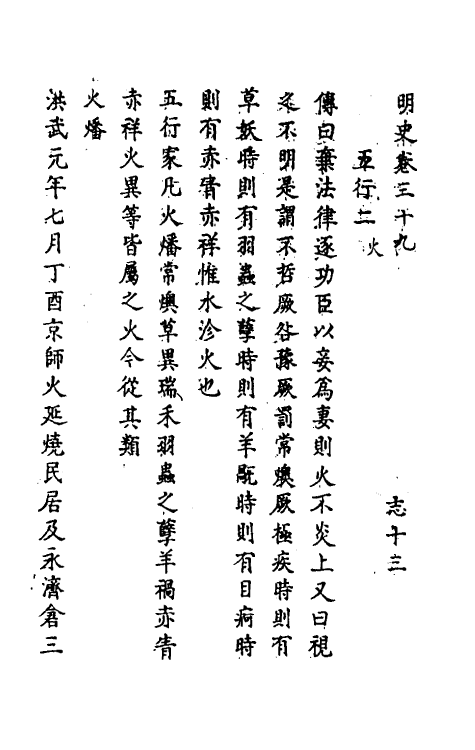 明史卷三十九 志十三
五行二 火
傳曰棄法律逐功臣以妾爲妻則火不炎上又曰視
之不明是謂不哲厥咎豫厥罰常燠厥極疾時則有
草妖時則有羽蟲之孽時則有羊旤時則有目痾時
則有赤眚赤祥惟水沴火也
五行家凡火燔常燠草異瑞禾羽蟲之孽羊禍赤眚
赤祥火異等皆屬之火今從其類
火燔
洪武元年七月丁酉京師火延燒民居及永濟倉三